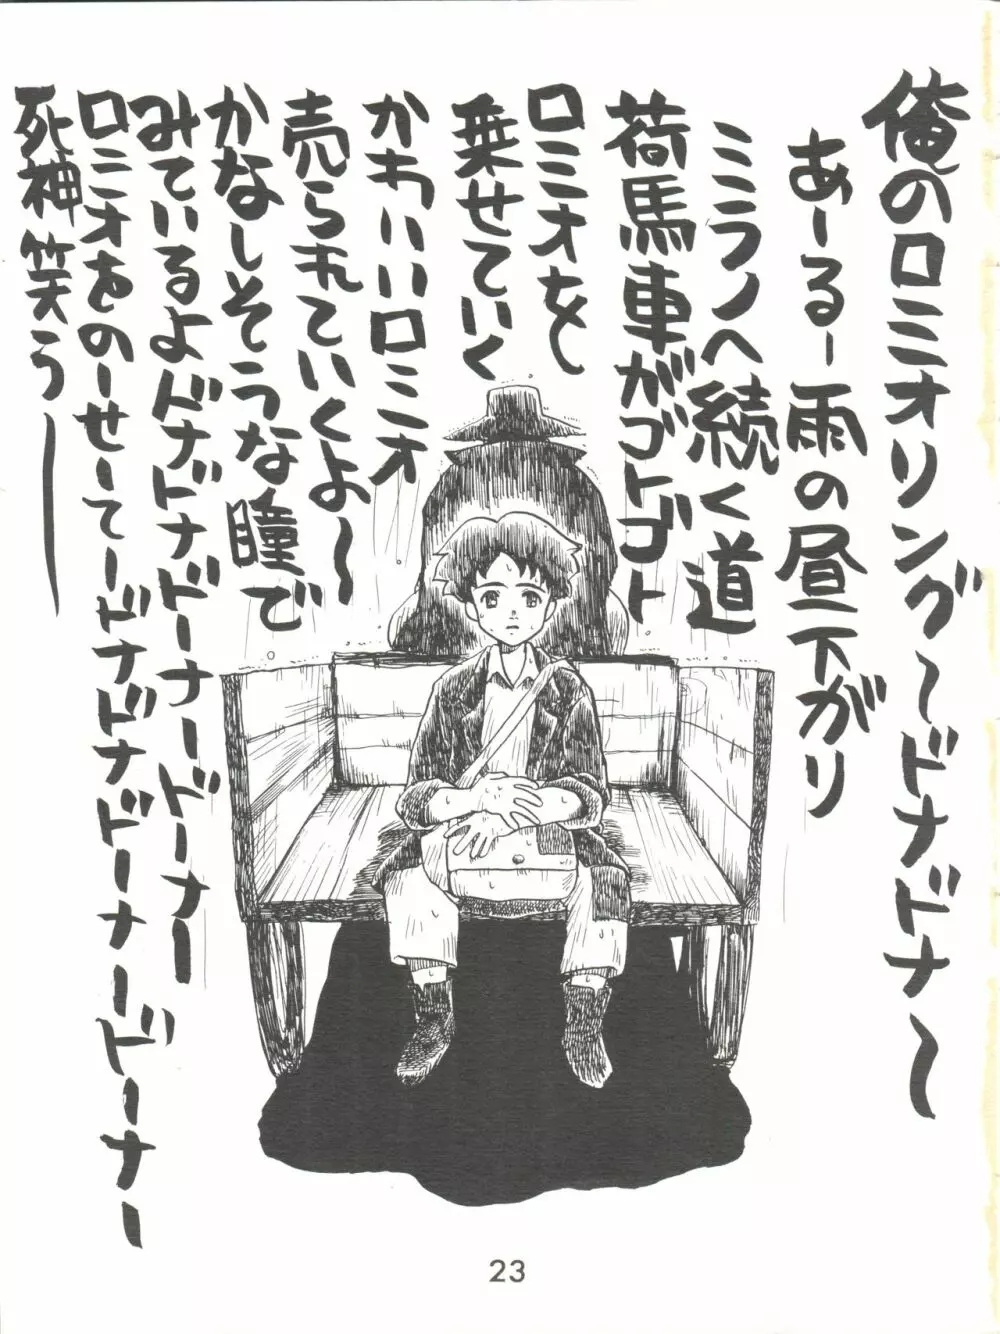 俺のロミオリング〜ドナドナ〜
あーるー雨の昼下がり
ミミラノへ続く道
荷馬車がゴトゴト
ロミオを
乗せていく
かわいいロミオ
売られていくよ〜
かなしそうな瞳で
みているよドナドナドーナードーナー
ロミオをのーせてードナドナドーナードーナー
死神笑うー
23